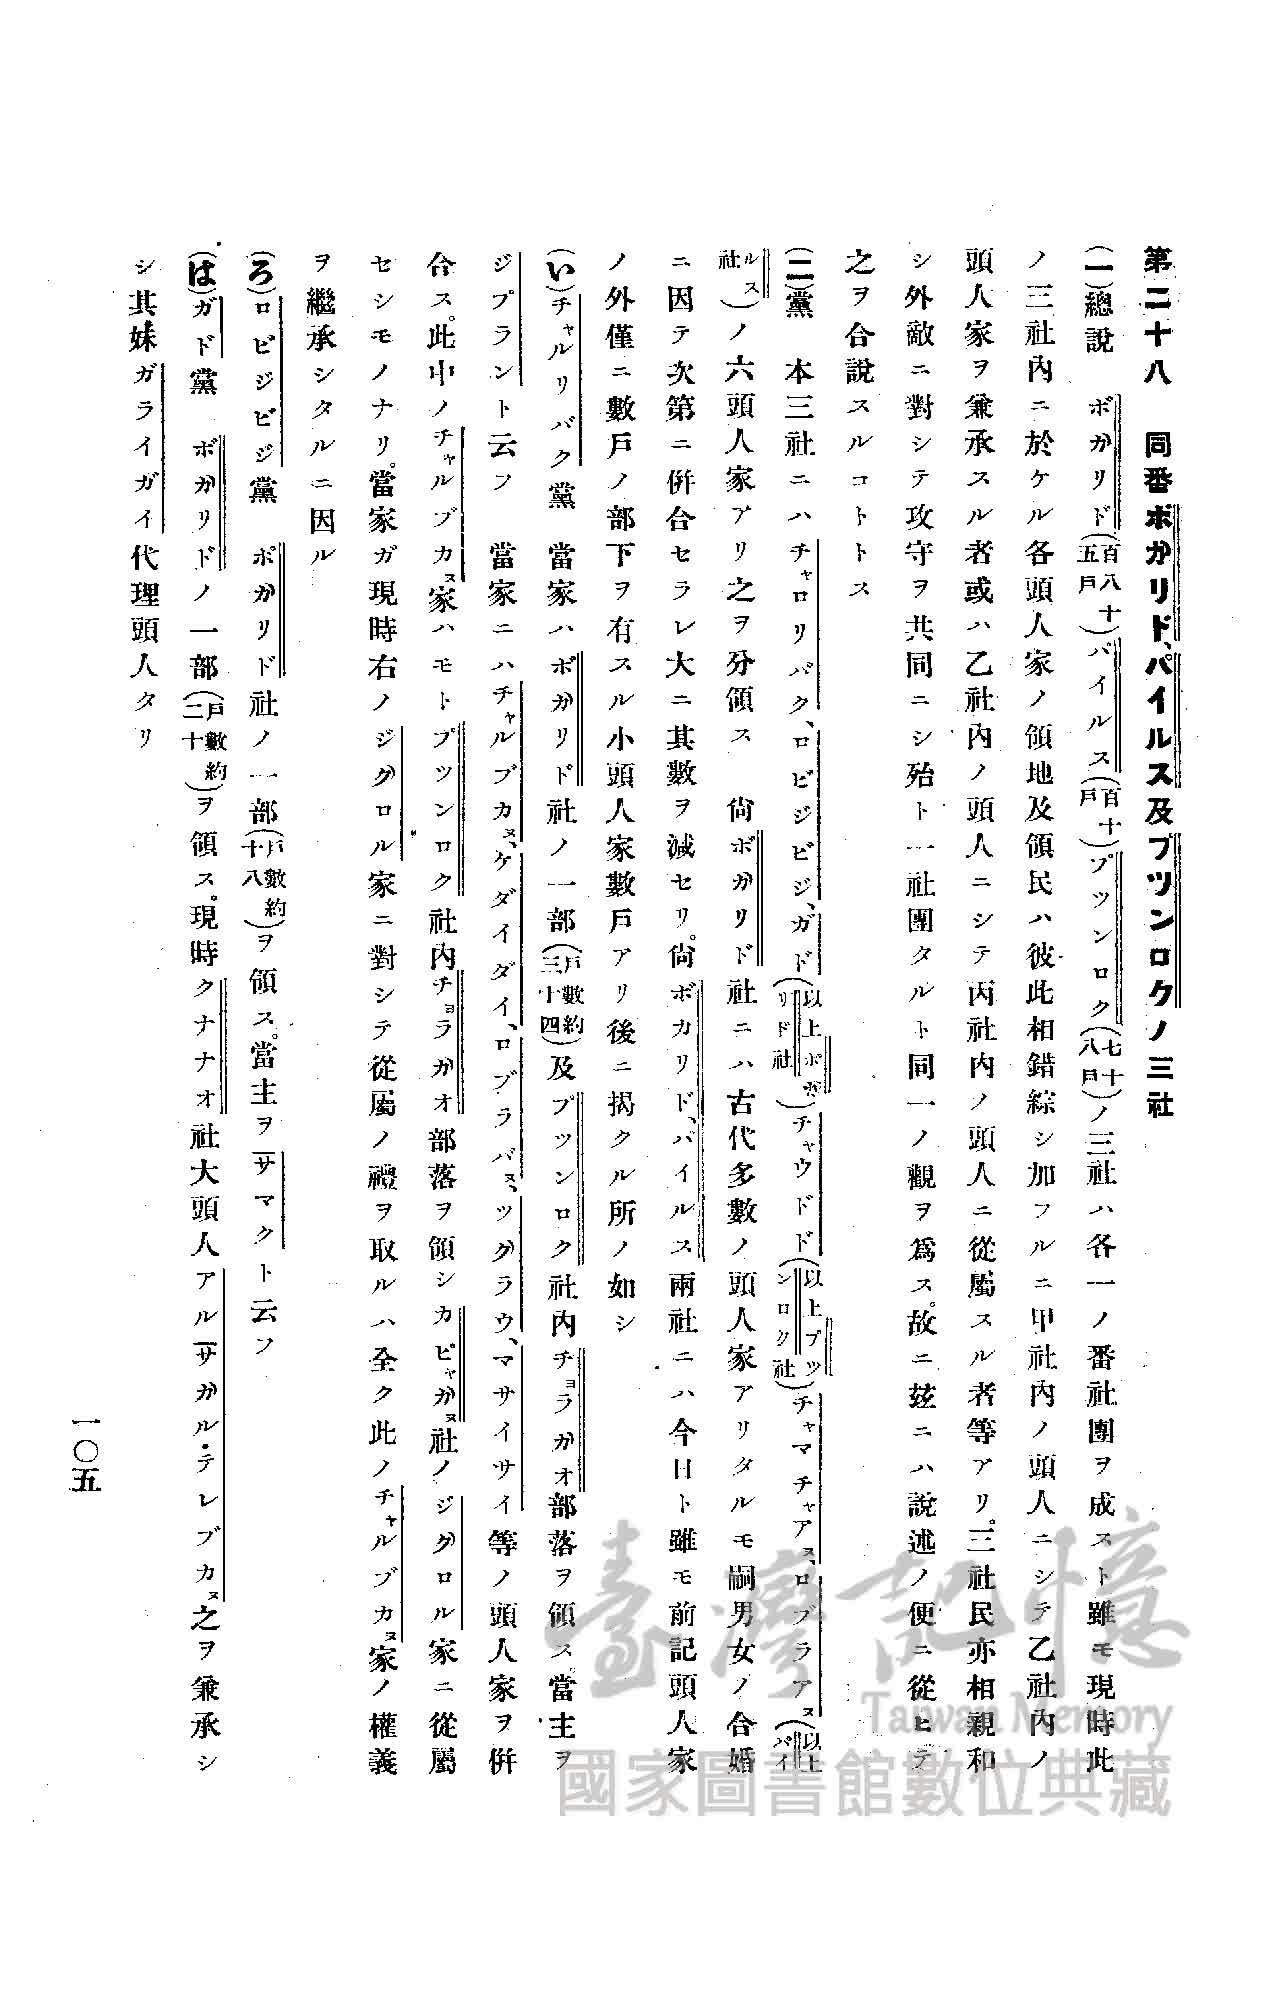 第二十八　同番ボガリド、パイルス及プツンロクノ三社
(一)總說　ボガリド(百八十五戶)パイルス(百十戶)プツンロク(七十八戶)ノ三社ハ各一ノ番社團ヲ成スト雖モ現時此
ノ三社內ニ於ケル各頭人家ノ領地及領民ハ彼此相錯綜シ加フルニ甲社內ノ頭人ニシテ乙社內ノ
頭人家ヲ兼承スル者或ハ乙社內ノ頭人ニシテ丙社內ノ頭人ニ從屬スル者等アリ。三社民亦相親和
シ外敵ニ對シテ攻守ヲ共同ニシ殆ト一社團タルト同一ノ觀ヲ爲ス。故ニ玆ニハ說述ノ便ニ從ヒテ
之ヲ合說スルコトトス
(二)黨　本三社ニハチャロリバク、ロビジビジ、ガド(以上ボガリド社)チャウドド(以上プツンロク社)チャマチャアス、ロブラアス(以上パイ
ルス社)ノ六頭人家アリ之ヲ分領ス　尙ボガリド社ニハ古代多數ノ頭人家アリタルモ嗣男女ノ合婚
ニ因テ次第ニ併合セラレ大ニ其數ヲ減セリ。尙ボカリド、パイルス兩社ニハ今日ト雖モ前記頭人家
ノ外僅ニ數戶ノ部下ヲ有スル小頭人家數戶アリ後ニ揭クル所ノ如シ
(い)チャルリバク黨　當家ハボガリド社ノ一部(戶數約三十四)及プツンロク社內チョラガオ部落ヲ領ス。當主ヲ
ジプラント云フ　當家ニハチャルブカヌ、ケダイダイ、ロブラバヌ、ツグラウ、マサイサイ等ノ頭人家ヲ併
合ス。此中ノチャルブカヌ家ハモトプツンロク社內チョラガオ部落ヲ領シカビャガヌ社ノジグロル家ニ從屬
セシモノナリ。當家ガ現時右ノジグロル家ニ對シテ從屬ノ禮ヲ取ルハ全ク此ノチャルブカヌ家ノ權義
ヲ繼承シタルニ因ル
(ろ)ロビジビジ黨　ボガリド社ノ一部(戶數約十八)ヲ領ス。當主ヲサマクト云フ
(は)ガド黨　ボガリドノ一部(戶數約二十)ヲ領ス。現時クナナオ社大頭人アルサガル・テレブカヌ之ヲ兼承シ
シ其妹ガライガイ代理頭人タリ
一〇五
臺灣記憶
Taiwan Memory
國家圖書館數位典藏